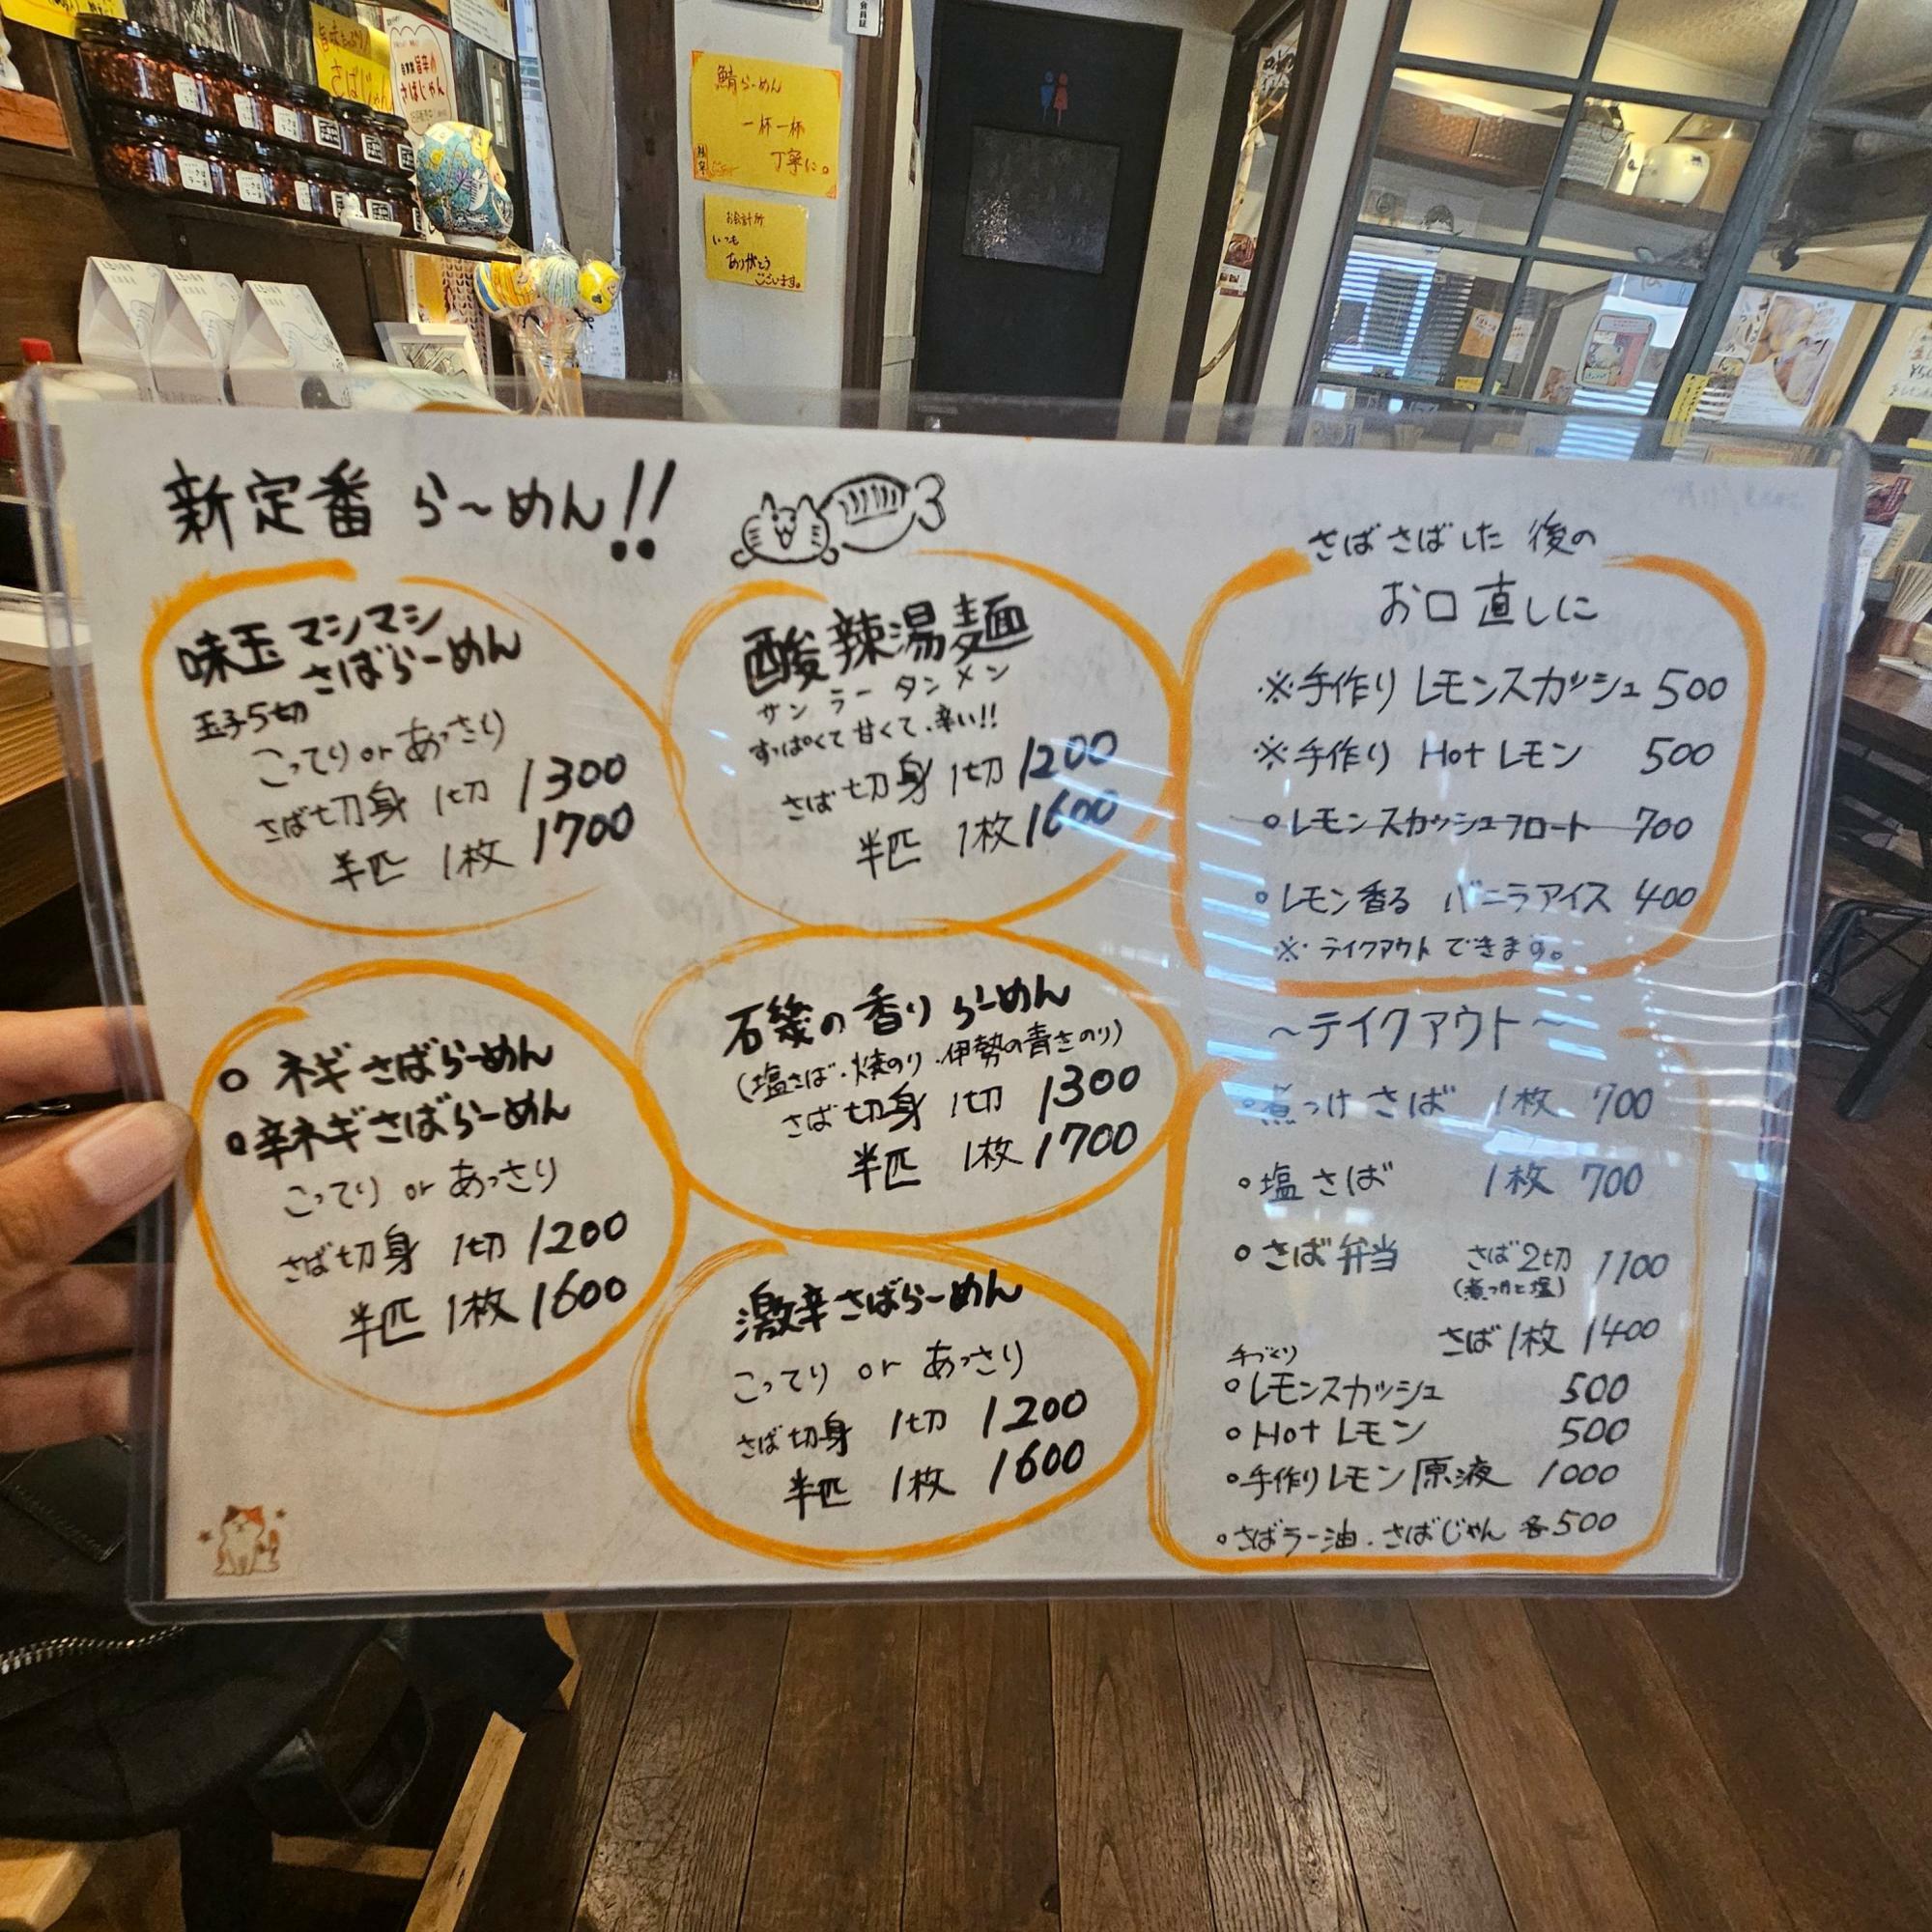 鯖らーめん
一杯一杯
丁寧に。
お会計所
いつも
ありがとう
ございます。
さばじゃん
新定番 らーめん!!
味玉マシマシ
さばらーめん
玉子5切
こってり or あっさり
さば切身 1切 1300
半匹 1枚 1700
○ ネギさばらーめん
○ 辛ネギさばらーめん
こってり or あっさり
さば切身 1切 1200
半匹 1枚 1600
酸辣湯麺
サンラータンメン
すっぱくて甘くて、辛い!!
さば切身 1切 1200
半匹 1枚 1600
磯の香りらーめん
(塩さば・焼のり・伊勢の青さのり)
さば切身 1切 1300
半匹 1枚 1700
激辛さばらーめん
こってり or あっさり
さば切身 1切 1200
半匹 1枚 1600
さばさばした後の
お口直しに
※手作り レモンスカッシュ 500
※手作り Hot レモン 500
○レモンスカッシュフロート 700
○レモン香る バニラアイス 400
※テイクアウトできます。
～テイクアウト～
○煮つけさば 1枚 700
○塩さば 1枚 700
○さば弁当 さば2切 1100
(煮つけと塩)
さば1枚 1400
手づくり
○レモンスカッシュ 500
○Hot レモン 500
○手作りレモン原液 1000
○さばラー油・さばじゃん 各500